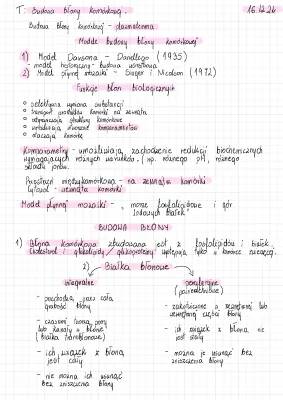 T: Budowa błony komórkowej.
16.12.24
Budowa błony komórkowej - plazmolemma
Modele budowy błony komórkowej
1) Model Davsona - Danellego (1935)
- model historyczny - budowa warstwowa
2) Model płynnej mozaiki - Singer i Nicolson (1972)
Funkcje błon biologicznych
selektywna wymiana substancji
transport produktów komórki na zewnątrz
utrzymywanie struktury komórkowe
komórkę
Kompartmenty - umożliwiają zachodzenie reakcji biochemicznych
wymagających różnych warunków. (np. różnego pH, różnego
składu jonów.
Przestrzeń międzykomórkowa - na zewnątrz komórki
Cytozol - wewnątrz komórki
Model płynnej mozaiki - morze fosfolipidowe i gór
lodowych białek
BUDOWA BŁONY
1) Błona komórkowa zbudowana jest z fosfolipidów i białek.
Cholesterol i glikolipidy / glikoproteiny występują tylko w komórce zwierzęcej.
2) Białka błonowe
integralne
- przechodzą przez całą
grubość błony
- czasami tworzą pory
lub kanały w błonie
(białka tranbłonowe)
- ich związek z błoną
jest stały
- nie można ich usunąć
bez zniszczenia błony
peryferyjne
(powierzchniowe)
- zakotwiczone w zewnętrznej lub
wewnętrznej części błony
- ich związek z błoną nie
jest stały
- można je usunąć bez
zniszczenia błony